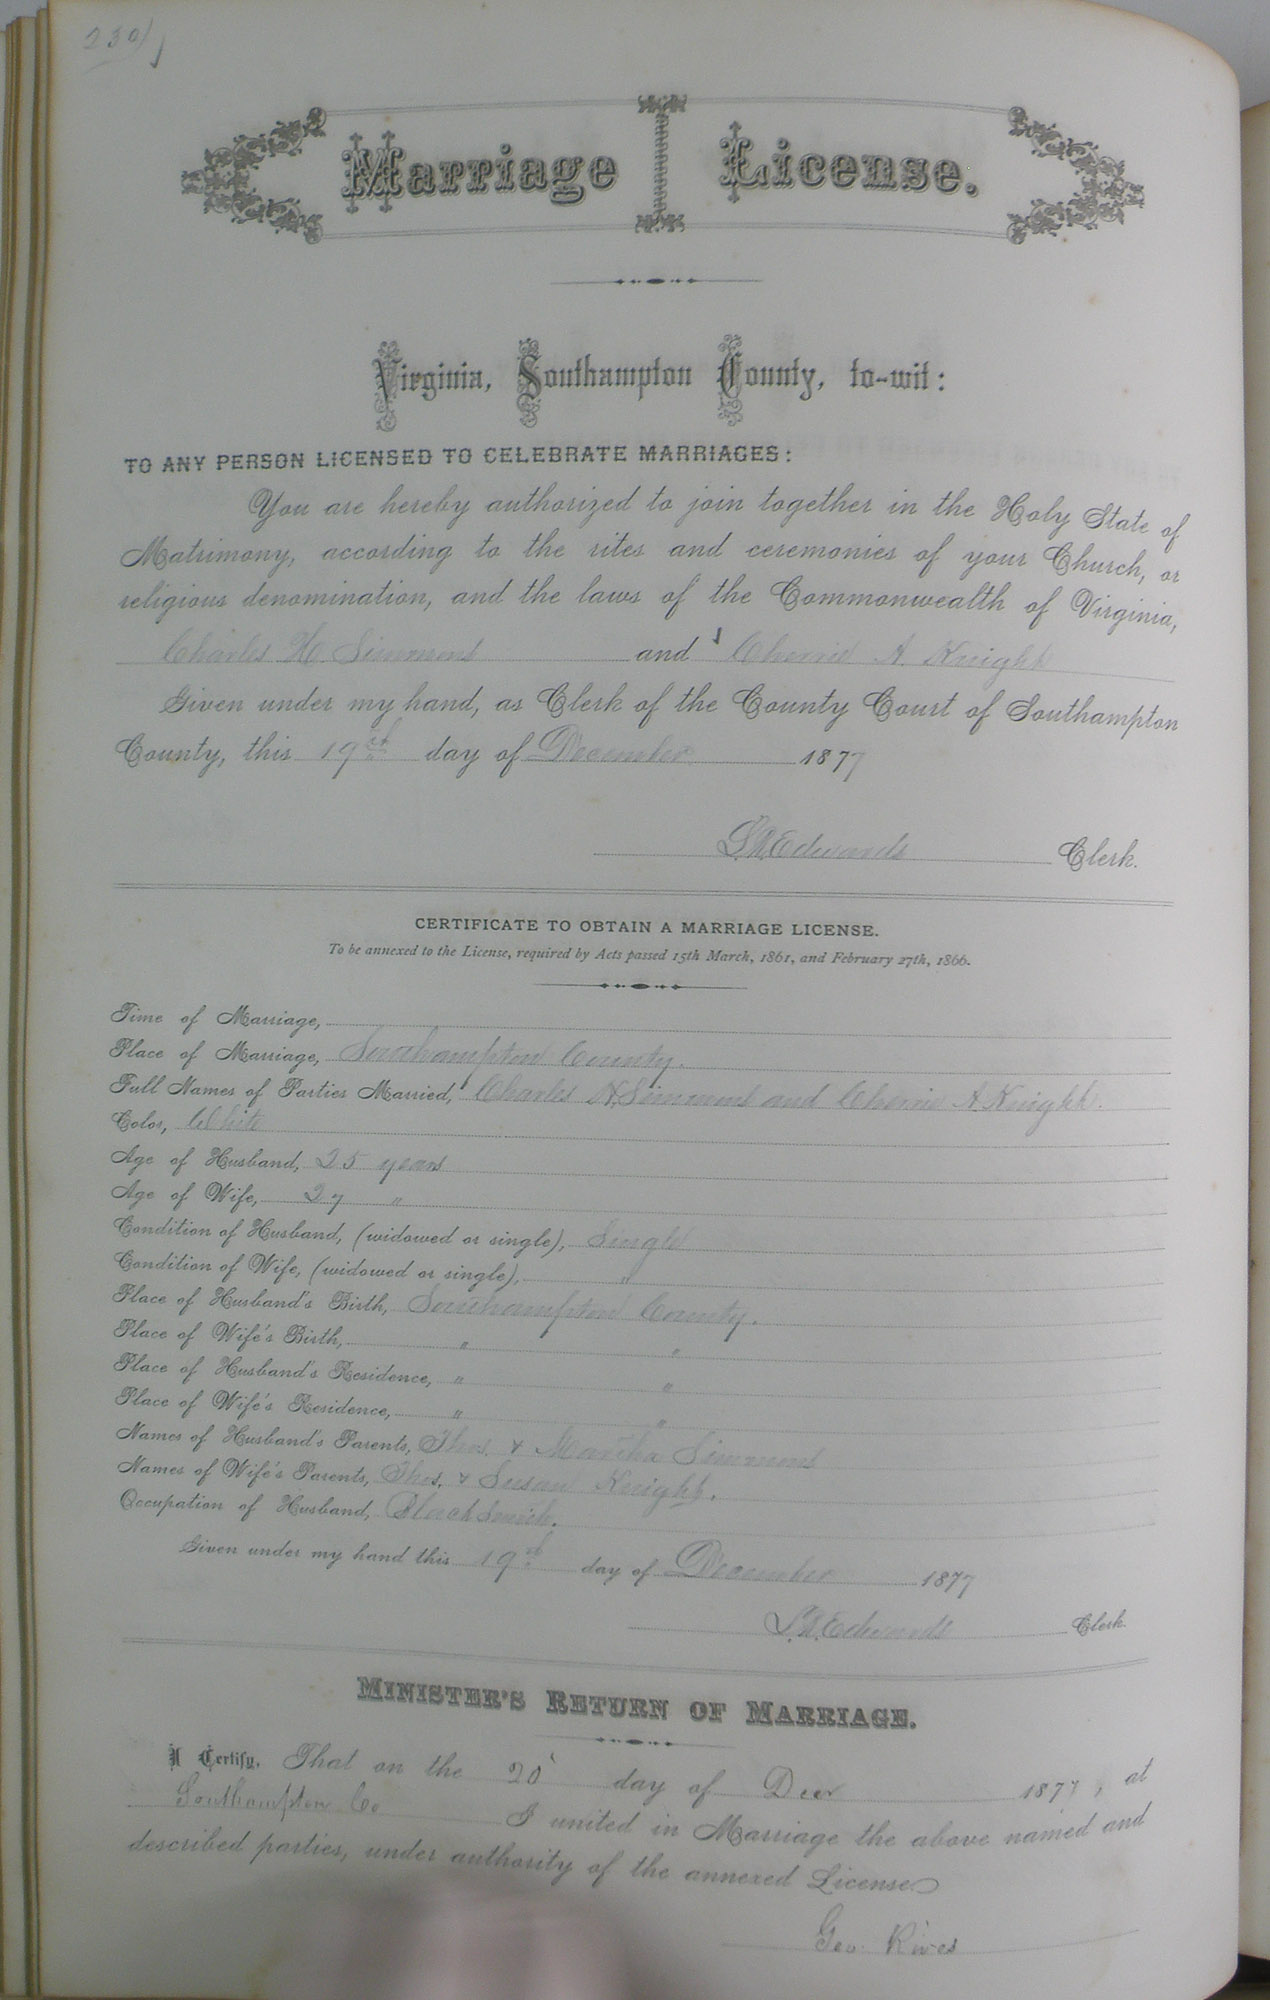 230
Marriage License.
Virginia, Southampton County, to-wit:
TO ANY PERSON LICENSED TO CELEBRATE MARRIAGES:
You are hereby authorized to join together in the Holy State of
Matrimony, according to the rites and ceremonies of your Church, or
religious denomination, and the laws of the Commonwealth of Virginia,
Charles H Simmons and Cherrie A. Knight
Given under my hand, as Clerk of the County Court of Southampton
County, this 19th day of December 1877
L.R. Edwards Clerk.
CERTIFICATE TO OBTAIN A MARRIAGE LICENSE.
To be annexed to the License, required by Acts passed 15th March, 1861, and February 27th, 1866.
Time of Marriage,
Place of Marriage, Southampton County.
Full Names of Parties Married, Charles H. Simmons and Cherrie A Knight.
Color, White
Age of Husband, 25 years
Age of Wife, 27 "
Condition of Husband, (widowed or single), Single
Condition of Wife, (widowed or single), "
Place of Husband's Birth, Southampton County.
Place of Wife's Birth, " "
Place of Husband's Residence, " "
Place of Wife's Residence, " "
Names of Husband's Parents, Thos. & Martha Simmons
Names of Wife's Parents, Thos. & Susan Knight.
Occupation of Husband, Black Smith.
Given under my hand this 19th day of December 1877
L.R. Edwards Clerk.
MINISTER'S RETURN OF MARRIAGE.
I Certify, That on the 20 day of Decr 1877, at
Southampton Co I united in Marriage the above named and
described parties, under authority of the annexed License
Geo. Rives